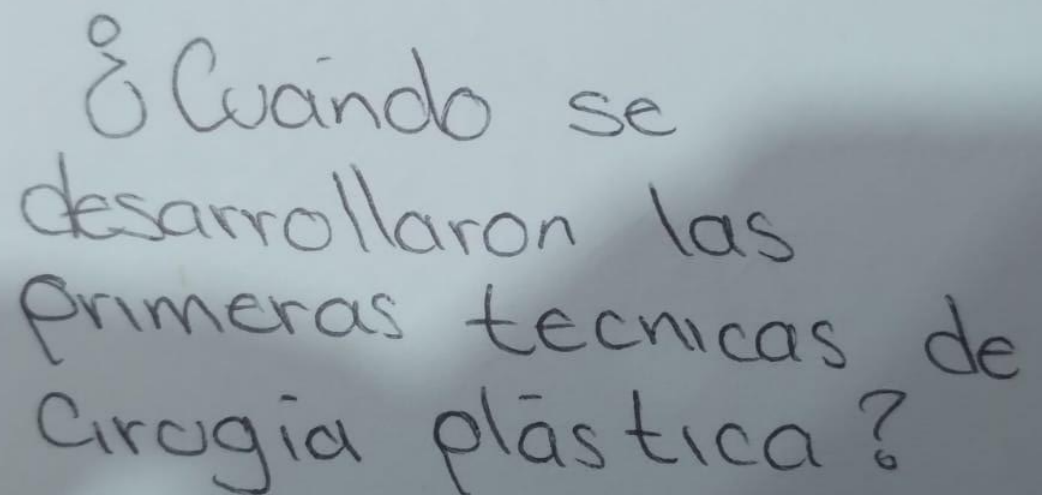 ¿Cuándo se
desarrollaron las
primeras tecnicas de
cirugía plástica?